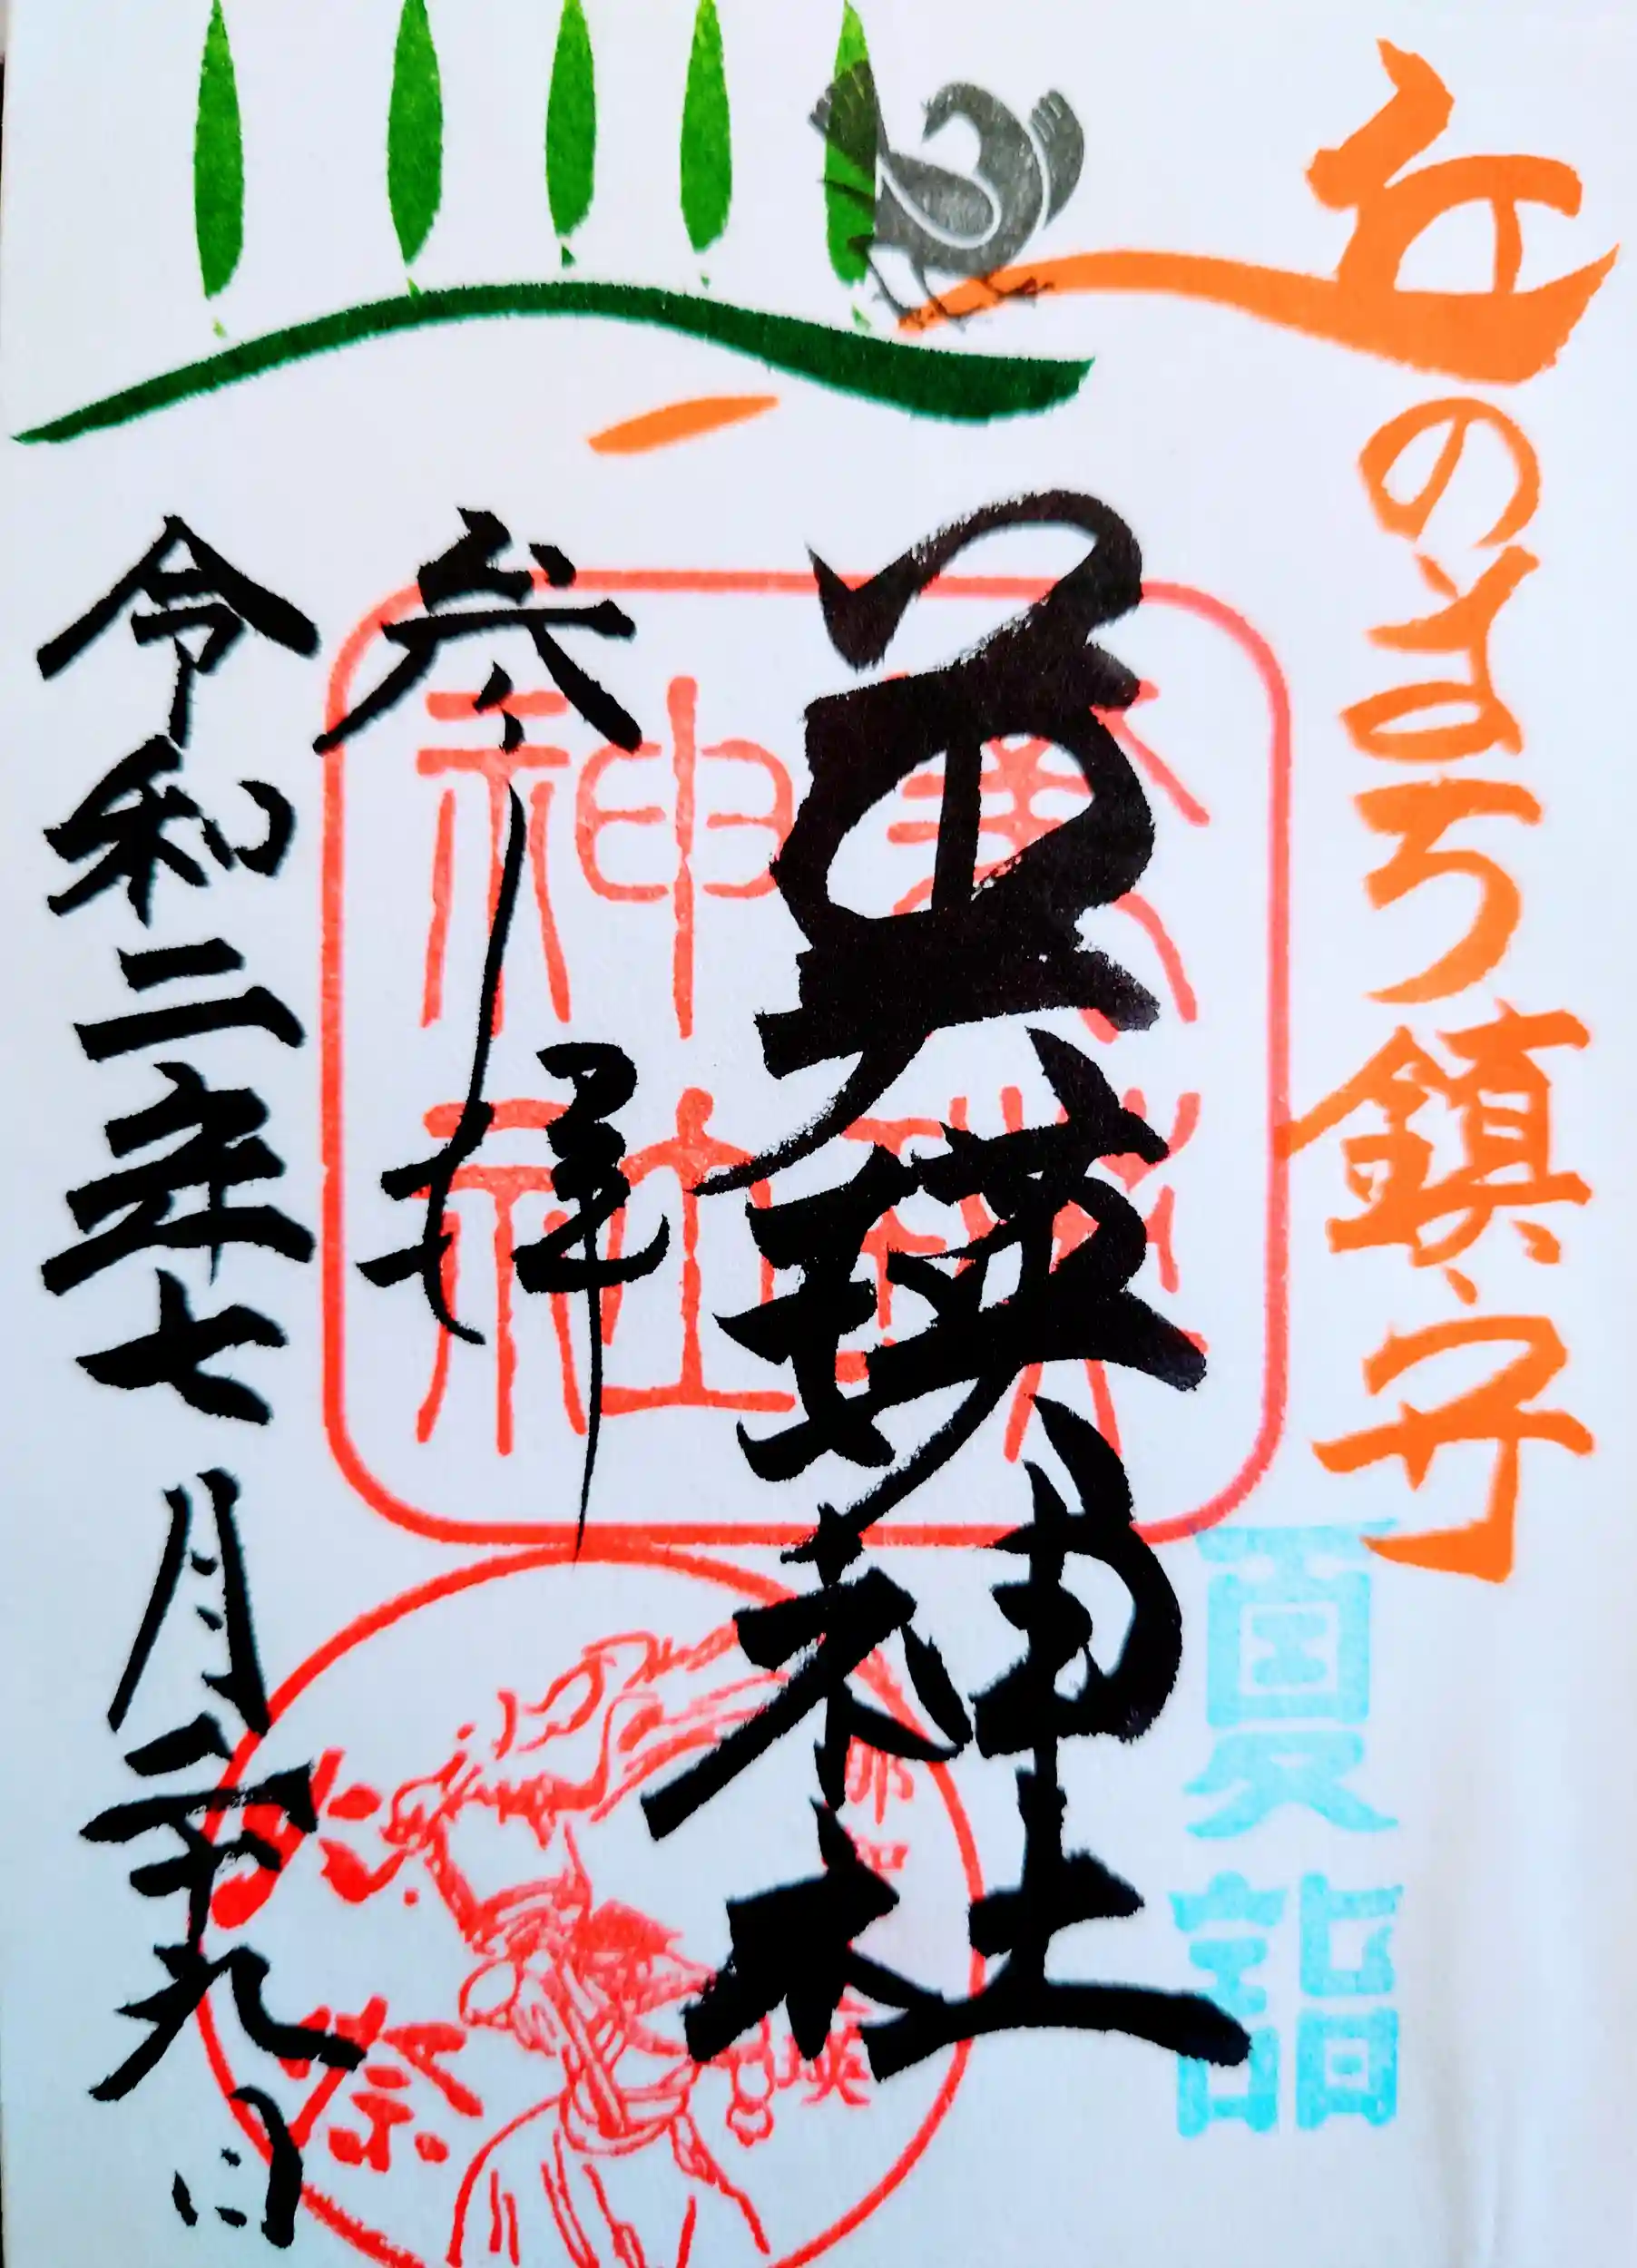 丘のまち鎮守
夏詣
美瑛神社
奉拝
令和二年七月二十九日
美瑛
神社
火祭